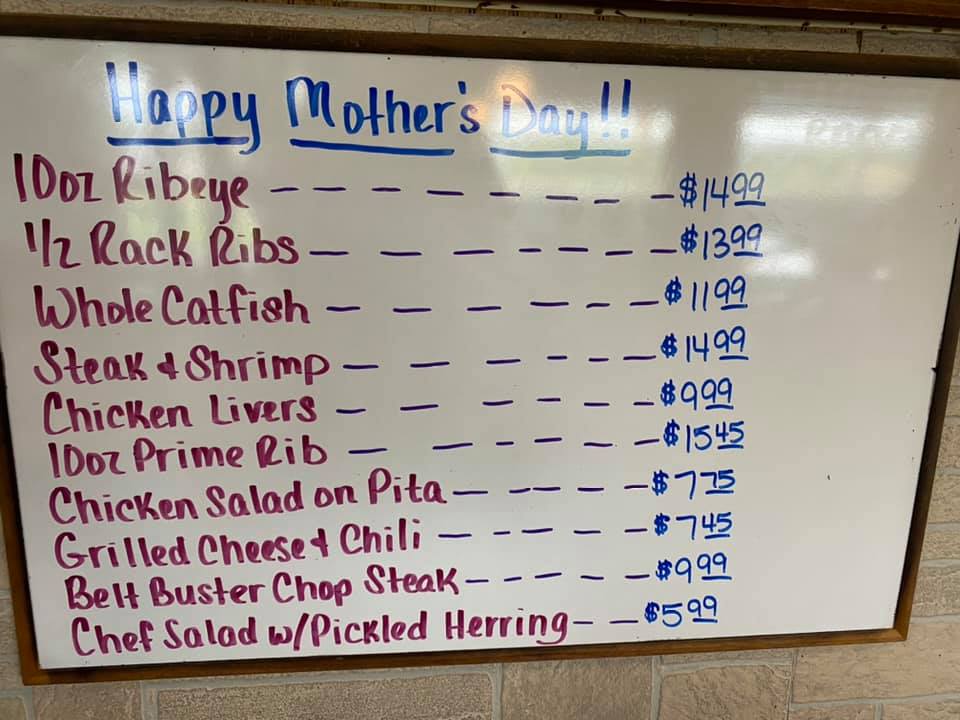 Happy Mother's Day!!
10oz Ribeye - - - - - - - - $14.99
1/2 Rack Ribs - - - - - - - $13.99
Whole Catfish - - - - - - $11.99
Steak & Shrimp - - - - - - - $14.99
Chicken Livers - - - - - - $9.99
10oz Prime Rib - - - - - - $15.45
Chicken Salad on Pita - - - - - $7.75
Grilled Cheese & Chili - - - - - $7.45
Belt Buster Chop Steak - - - - - $9.99
Chef Salad w/Pickled Herring - - $5.99